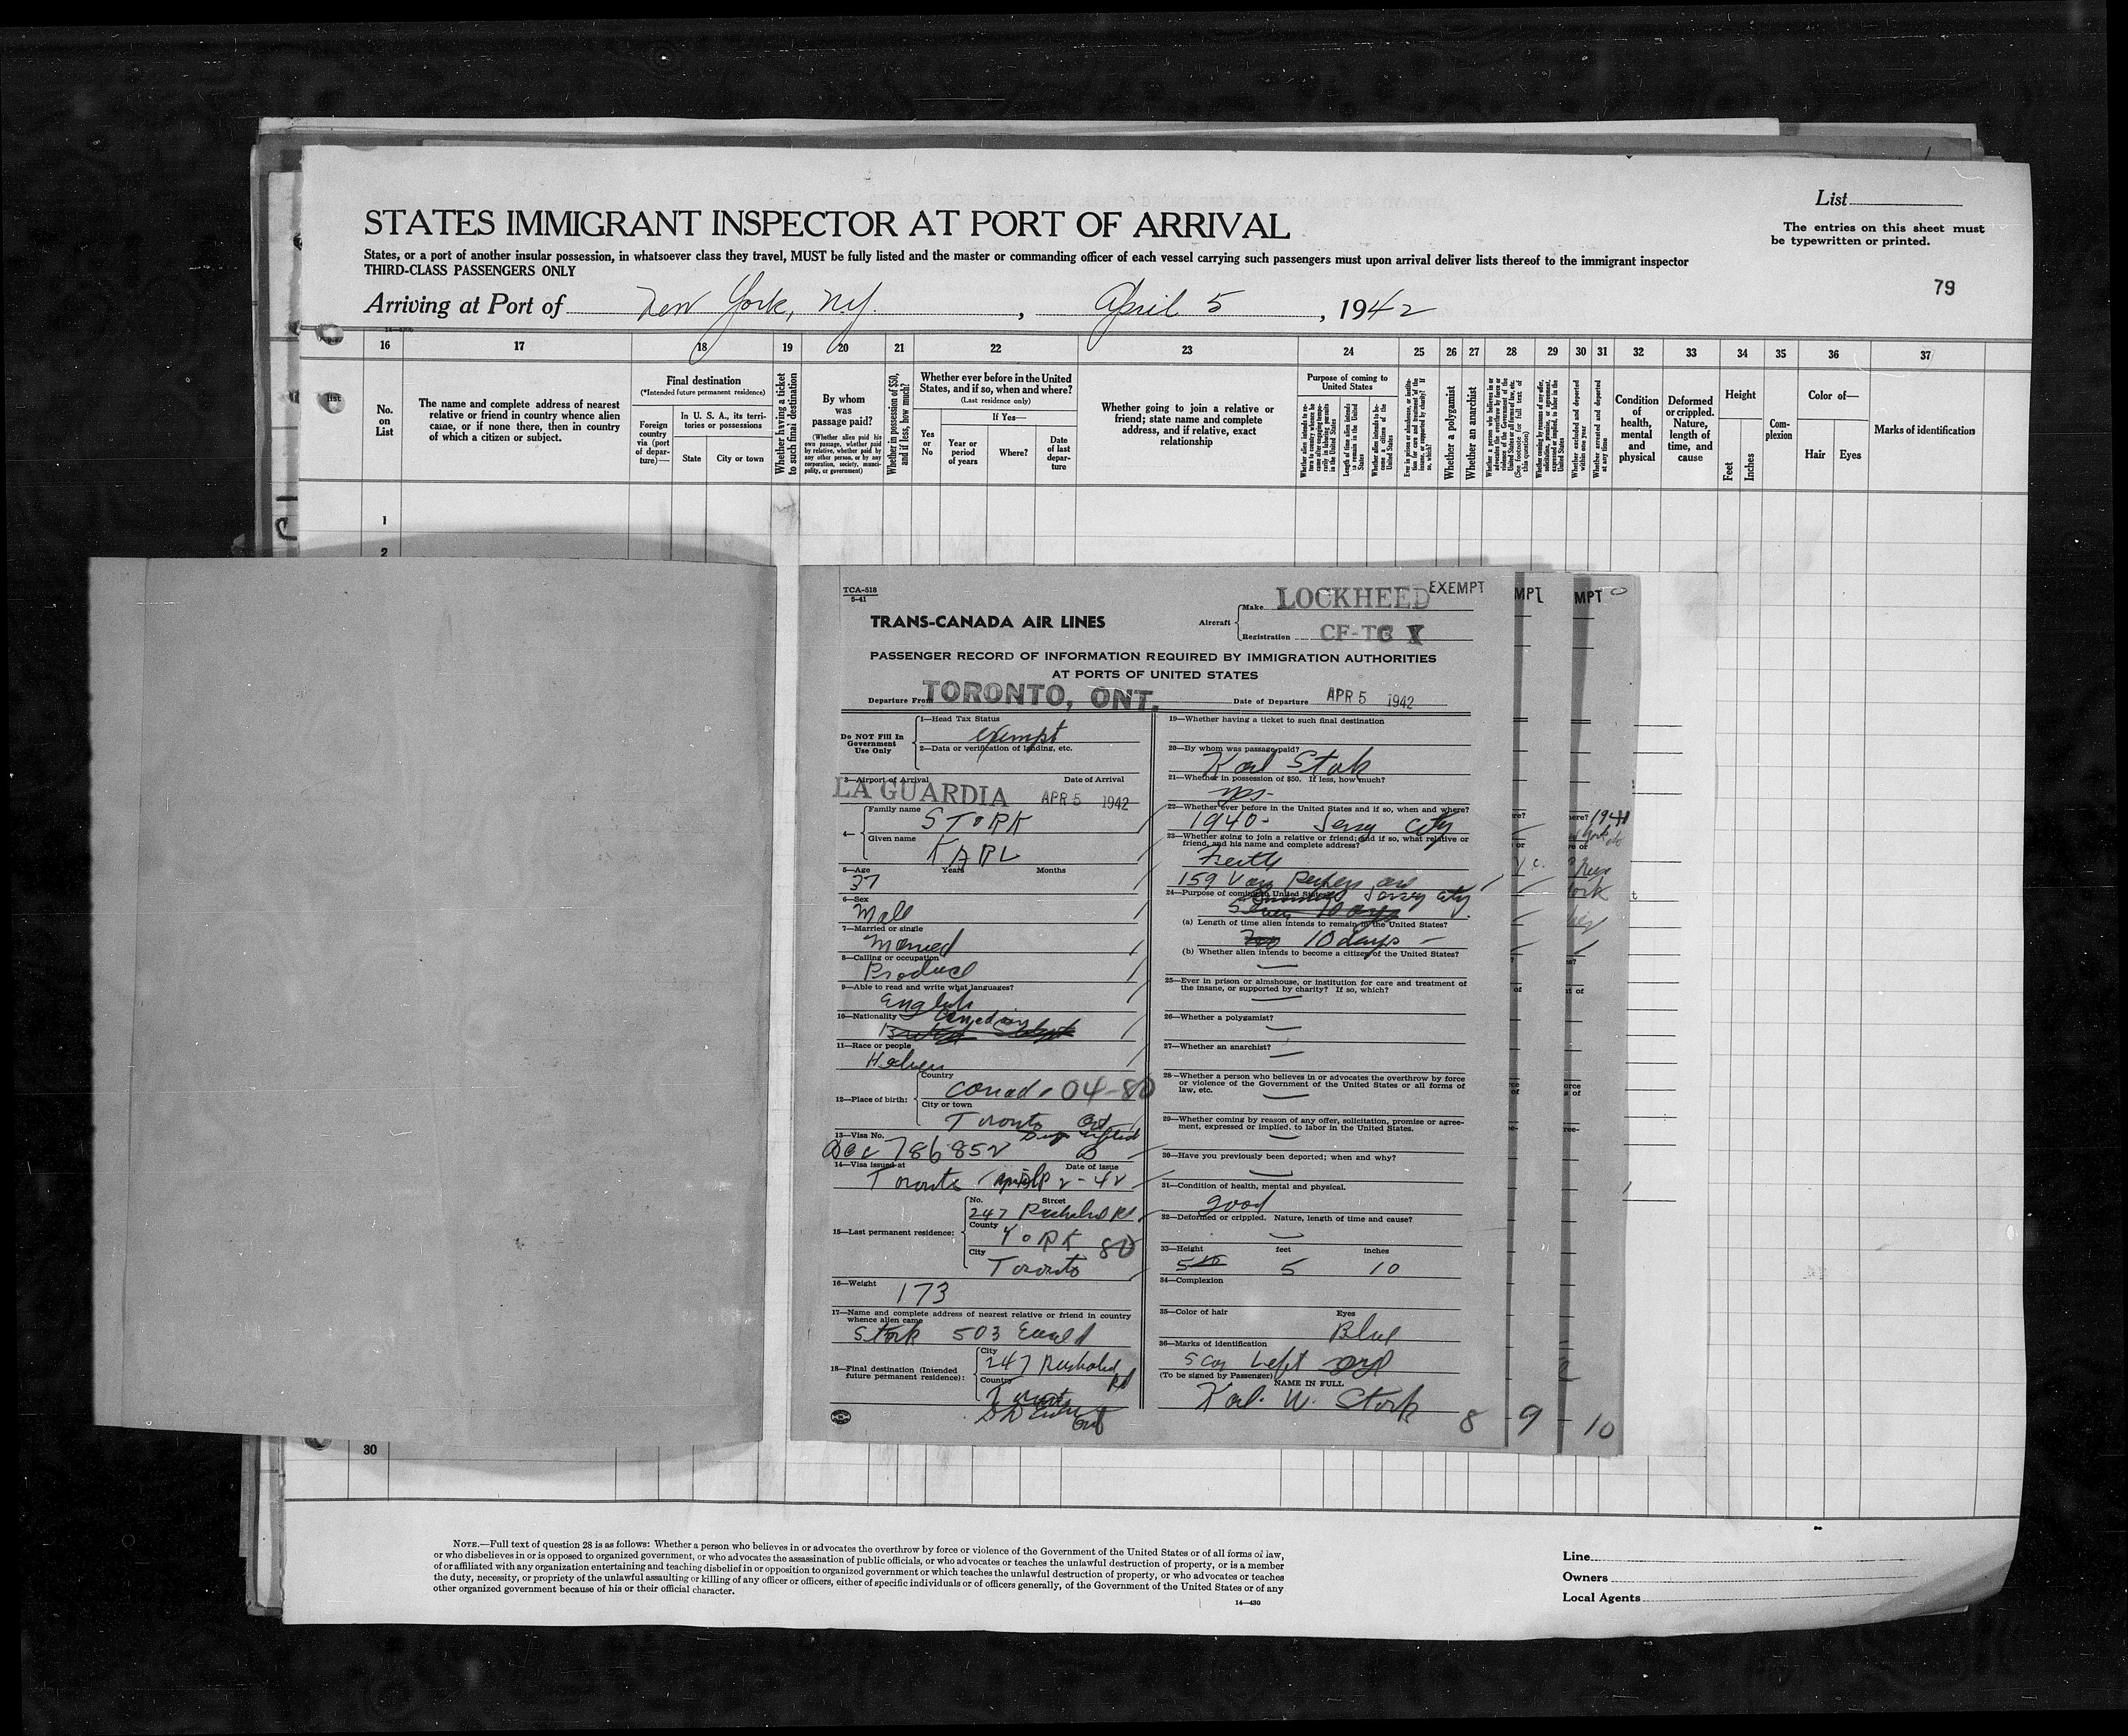 List
STATES IMMIGRANT INSPECTOR AT PORT OF ARRIVAL
The entries on this sheet must
be typewritten or printed.
States, or a port of another insular possession, in whatsoever class they travel, MUST be fully listed and the master or commanding officer of each vessel carrying such passengers must upon arrival deliver lists thereof to the immigrant inspector
THIRD-CLASS PASSENGERS ONLY
79
Arriving at Port of New York, N.Y. , April 5 , 1942
16 17 18 19 20 21 22 23 24 25 26 27 28 29 30 31 32 33 34 35 36 37
list
No. on List
The name and complete address of nearest relative or friend in country whence alien came, or if none there, then in country of which a citizen or subject.
Final destination
(*Intended future permanent residence)
Foreign country via (port of departure)—
In U. S. A., its territories or possessions
State
City or town
Whether having a ticket to such final destination
By whom was passage paid?
(Whether alien paid his own passage, whether paid by relative, whether paid by any other person, or by any corporation, society, municipality, or government)
Whether in possession of $50, and if less, how much?
Whether ever before in the United States, and if so, when and where?
(Last residence only)
Yes or No
If Yes—
Year or period of years
Where?
Date of last departure
Whether going to join a relative or friend; state name and complete address, and if relative, exact relationship
Purpose of coming to United States
Length of time alien intends to remain in the United States
Whether alien intends to become a citizen of the United States
Whether a polygamist
Whether an anarchist
Whether arrested and deported at any time
Condition of health, mental and physical
Deformed or crippled. Nature, length of time, and cause
Height
Feet
Inches
Complexion
Color of—
Hair
Eyes
Marks of identification
1
2
30
TCA-518
5-41
TRANS-CANADA AIR LINES
Aircraft
Make LOCKHEED
EXEMPT
Registration CF-TC X
MPT
MPT
PASSENGER RECORD OF INFORMATION REQUIRED BY IMMIGRATION AUTHORITIES
AT PORTS OF UNITED STATES
Departure From TORONTO, ONT. Date of Departure APR 5 1942
Do NOT Fill In
Government
Use Only
1—Head Tax Status
exempt
2—Data or verification of landing, etc.
3—Airport of Arrival Date of Arrival
LA GUARDIA APR 5 1942
4—
Family name
STORK
Given name
KARL
5—Age Years Months
37
6—Sex
Male
7—Married or single
Married
8—Calling or occupation
Produce
9—Able to read and write what languages?
English
10—Nationality Canadian
11—Race or people
Hebrew
12—Place of birth:
Country
Canada 04-80
City or town
Toronto Ont
13—Visa No.
786852
14—Visa issued at Date of issue
Toronto April 2-42
15—Last permanent residence:
No. Street
247 Rusholme Rd
County
YORK 80
City
Toronto
16—Weight
173
17—Name and complete address of nearest relative or friend in country
whence alien came
Stork 503
18—Final destination (Intended
future permanent residence):
City
247 Rusholme Rd
Country
Toronto
Ont
19—Whether having a ticket to such final destination
20—By whom was passage paid?
Karl Stork
21—Whether in possession of $50. If less, how much?
yes-
22—Whether ever before in the United States and if so, when and where?
1940- Jersey City
23—Whether going to join a relative or friend; and if so, what relative or
friend, and his name and complete address?
159 Van
24—Purpose of coming to United States? Jersey City
(a) Length of time alien intends to remain in the United States?
10 days —
(b) Whether alien intends to become a citizen of the United States?
25—Ever in prison or almshouse, or institution for care and treatment of
the insane, or supported by charity? If so, which?
26—Whether a polygamist?
27—Whether an anarchist?
28—Whether a person who believes in or advocates the overthrow by force
or violence of the Government of the United States or all forms of
law, etc.
29—Whether coming by reason of any offer, solicitation, promise or agree-
ment, expressed or implied, to labor in the United States.
30—Have you previously been deported; when and why?
31—Condition of health, mental and physical.
good
32—Deformed or crippled. Nature, length of time and cause?
33—Height feet inches
5 10
34—Complexion
35—Color of hair Eyes
Blue
36—Marks of identification
Scar Left eye
(To be signed by Passenger) NAME IN FULL
Karl W. Stork
8
9
10
NOTE.—Full text of question 28 is as follows: Whether a person who believes in or advocates the overthrow by force or violence of the Government of the United States or of all forms of law,
or who disbelieves in or is opposed to organized government, or who advocates the assassination of public officials, or who advocates or teaches the unlawful destruction of property, or is a member
of or affiliated with any organization entertaining and teaching disbelief in or opposition to organized government or which teaches the unlawful destruction of property, or who advocates or teaches
the duty, necessity, or propriety of the unlawful assaulting or killing of any officer or officers, either of specific individuals or of officers generally, of the Government of the United States or of any
other organized government because of his or their official character.
14—430
Line
Owners
Local Agents